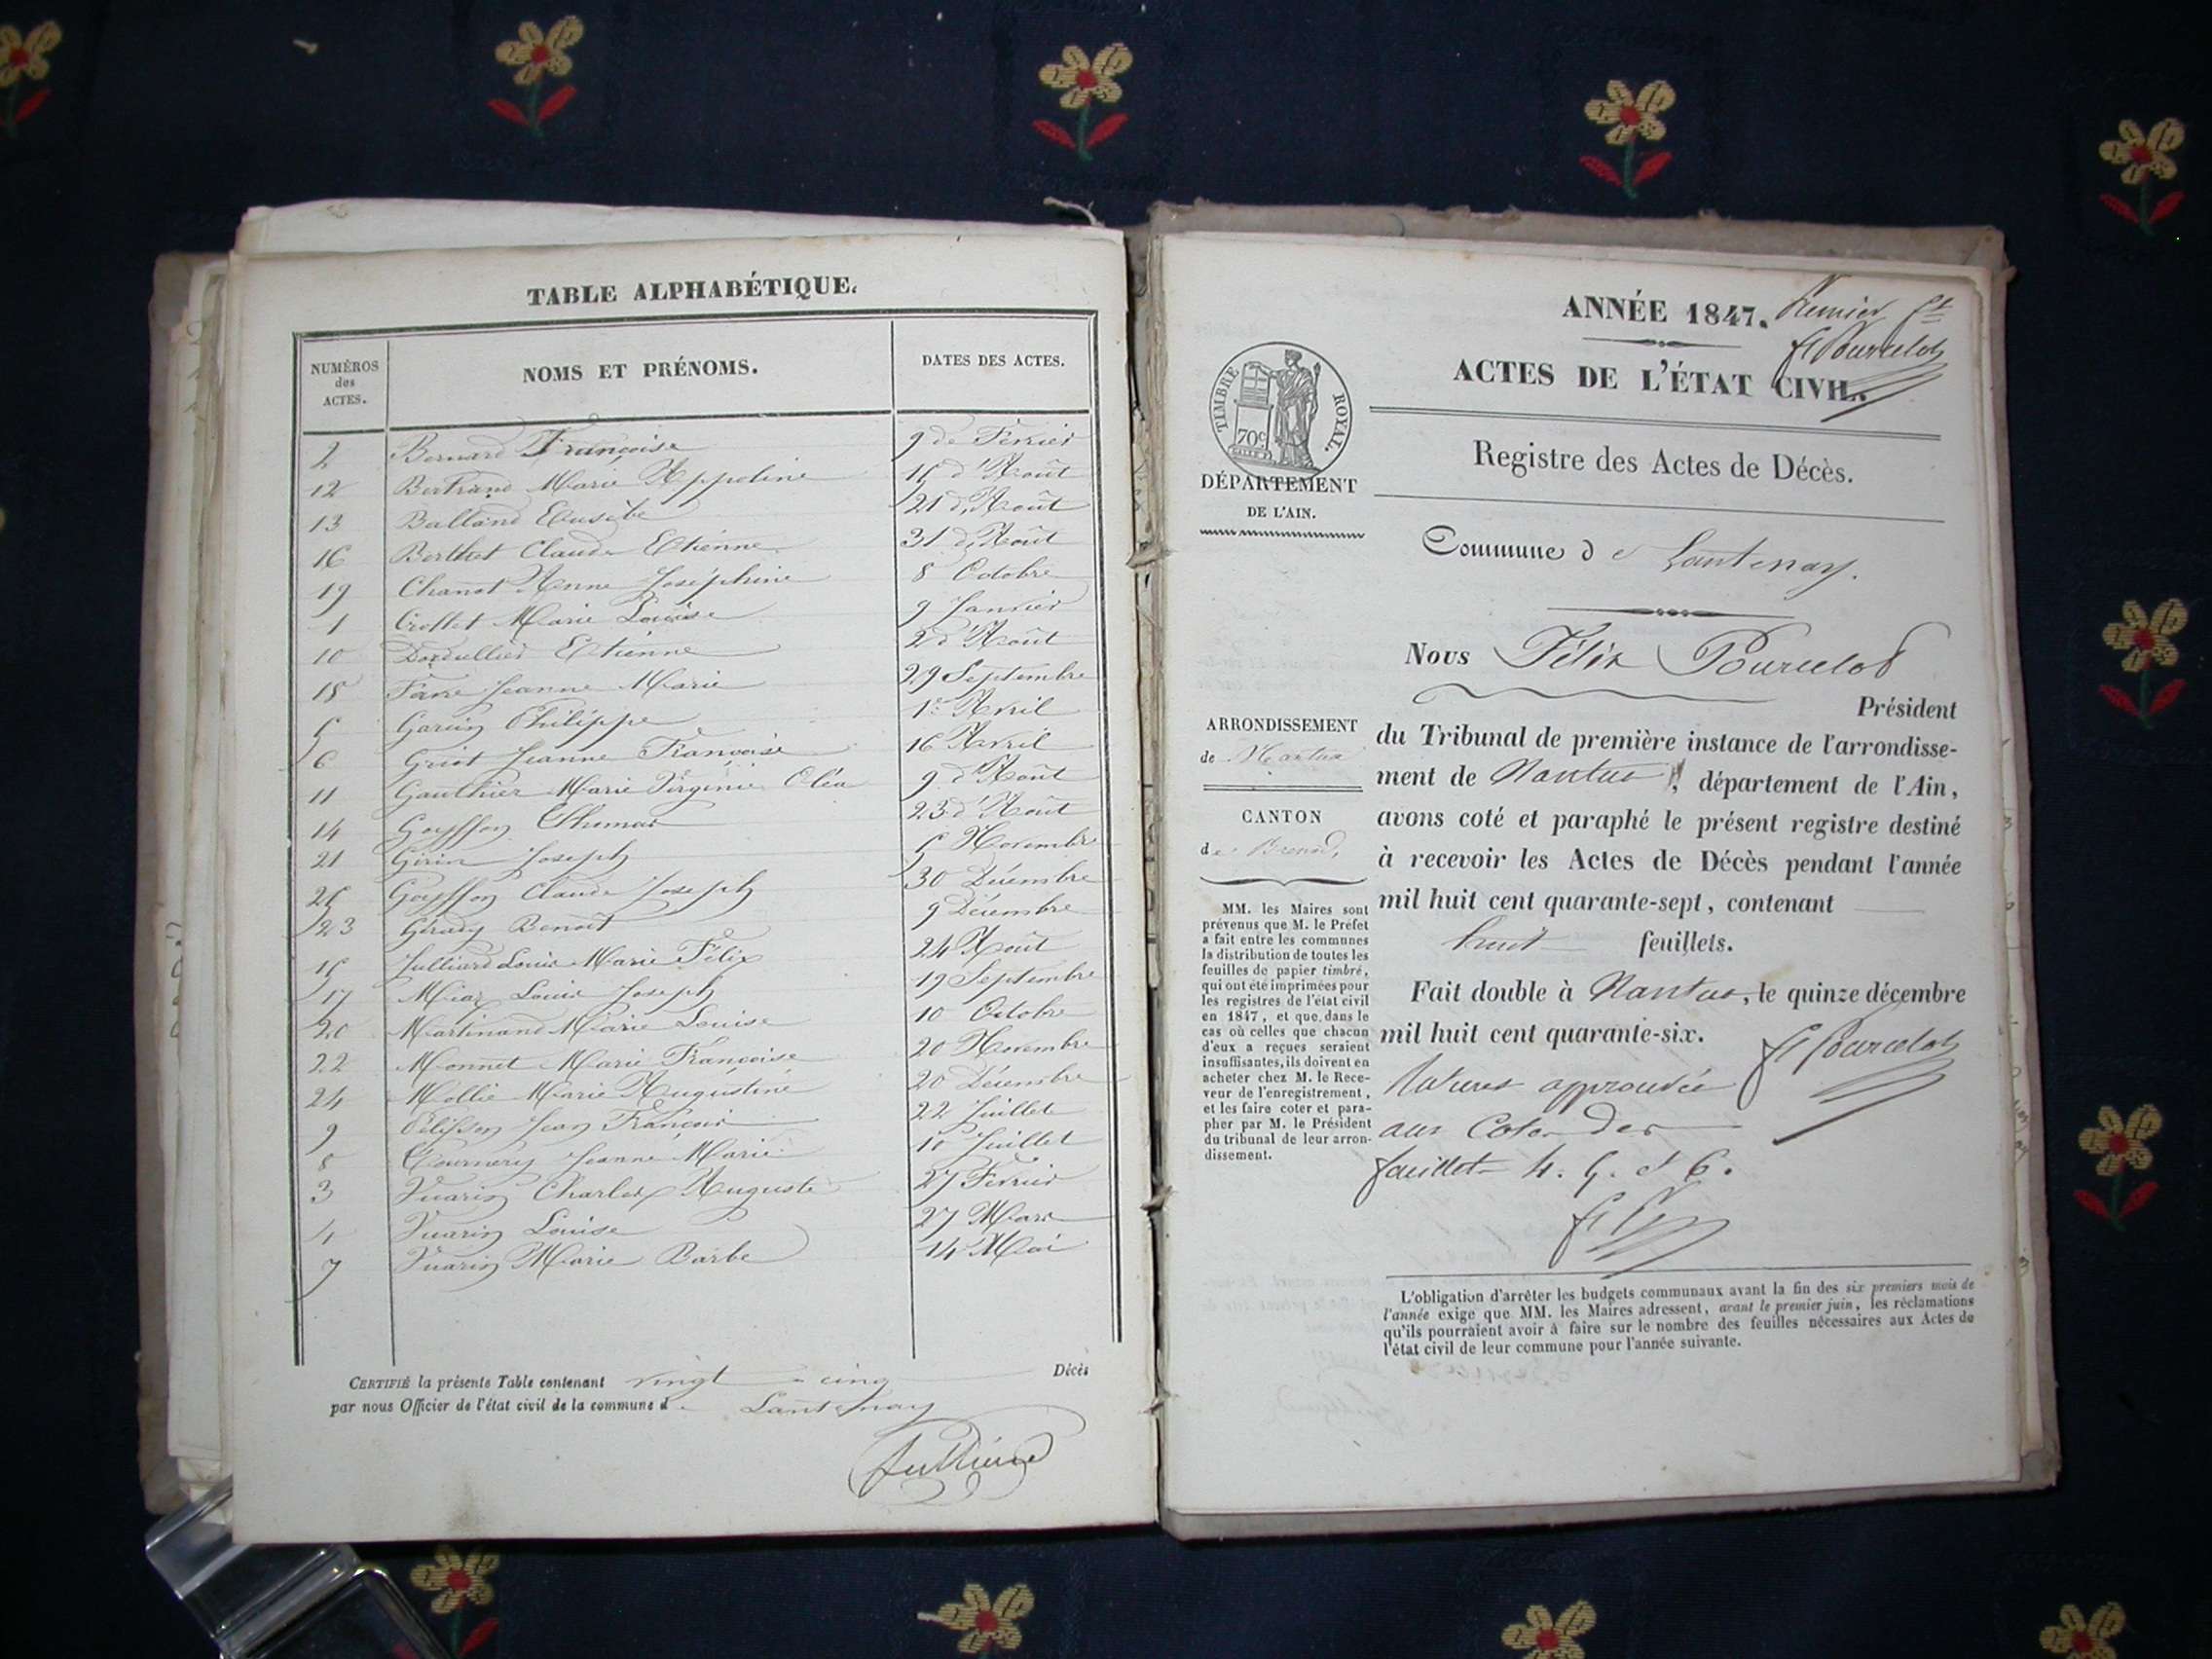 TABLE ALPHABÉTIQUE.
NUMÉROS des ACTES. NOMS ET PRÉNOMS. DATES DES ACTES.
2 Bernard Françoise 9 de Février
12 Bertrand Marie Appoline 15 d'Août
13 Balland Eusèbe 21 d'Août
16 Berthet Claude Etienne 31 d'Août
19 Chanot Anne Joséphine 8 Octobre
1 Crollet Marie Louise 9 Janvier
10 Etienne 2 d'Août
18 Favre Jeanne Marie 29 Septembre
5 Garin Philippe 1er Avril
6 Griot Jeanne Françoise 16 Avril
11 Gauthier Marie Virginie Cléa 9 d'Août
14 Goyffon Thomas 23 d'Août
21 Girin Joseph 5 Novembre
25 Goyffon Claude Joseph 30 Décembre
23 Benoit 9 Décembre
15 Julliard Louis Marie Félix 24 Août
17 Louis Joseph 19 Septembre
20 Martinand Marie Louise 10 Octobre
22 Monnet Marie Françoise 20 Novembre
24 Mollie Marie Augustine 20 Décembre
9 Pélisson Jean François 22 Juillet
8 Jeanne Marie Juillet
3 Vuarin Charles Auguste 27 Février
4 Vuarin Louise 27 Mars
7 Vuarin Marie Barbe 14 Mai
CERTIFIÉ la présente Table contenant vingt-cinq Décès
par nous Officier de l'état civil de la commune de Lantenay
ANNÉE 1847. Premier ft
fx Pourcelot
ACTES DE L'ÉTAT CIVIL.
TIMBRE ROYAL.
70c
Registre des Actes de Décès.
DÉPARTEMENT
DE L'AIN.
Commune de Lantenay.
Nous Félix Pourcelot
Président
du Tribunal de première instance de l'arrondisse-
ment de Nantua, département de l'Ain,
avons coté et paraphé le présent registre destiné
à recevoir les Actes de Décès pendant l'année
mil huit cent quarante-sept, contenant
huit feuillets.
Fait double à Nantua, le quinze décembre
mil huit cent quarante-six.
fx Pourcelot
approuvée
aux Cotes des
feuillets 4. 5. et 6.
ARRONDISSEMENT
de Nantua
CANTON
de Brenod,
MM. les Maires sont
prévenus que M. le Préfet
a fait entre les communes
la distribution de toutes les
feuilles de papier timbré,
qui ont été imprimées pour
les registres de l'état civil
en 1847, et que, dans le
cas où celles que chacun
d'eux a reçues seraient
insuffisantes, ils doivent en
acheter chez M. le Rece-
veur de l'enregistrement,
et les faire coter et para-
pher par M. le Président
du tribunal de leur arron-
dissement.
L'obligation d'arrêter les budgets communaux avant la fin des six premiers mois de
l'année exige que MM. les Maires adressent, avant le premier juin, les réclamations
qu'ils pourraient avoir à faire sur le nombre des feuilles nécessaires aux Actes de
l'état civil de leur commune pour l'année suivante.